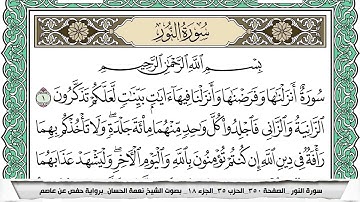 سُورَةُ النُّورِ
بِسْمِ اللَّهِ الرَّحْمَٰنِ الرَّحِيمِ
سُورَةٌ أَنزَلْنَٰهَا وَفَرَضْنَٰهَا وَأَنزَلْنَا فِيهَآ ءَايَٰتٍۭ بَيِّنَٰتٍ لَّعَلَّكُمْ تَذَكَّرُونَ ١
ٱلزَّانِيَةُ وَٱلزَّانِى فَٱجْلِدُوا۟ كُلَّ وَٰحِدٍ مِّنْهُمَا مِا۟ئَةَ جَلْدَةٍ وَلَا تَأْخُذْكُم بِهِمَا
رَأْفَةٌ فِى دِينِ ٱللَّهِ إِن كُنتُمْ تُؤْمِنُونَ بِٱللَّهِ وَٱلْيَوْمِ ٱلْـَٔاخِرِ وَلْيَشْهَدْ عَذَابَهُمَا
سورة النور _الصفحة ٣٥٠_ الحزب ٣٥_ الجزء ١٨_ بصوت الشيخ نعمة الحسان_ برواية حفص عن عاصم